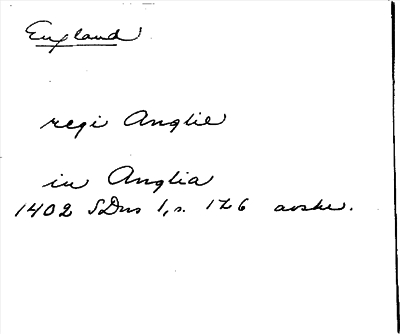 England
regi Anglie
in Anglia
1402 SDns 1, s. 176 avskr.